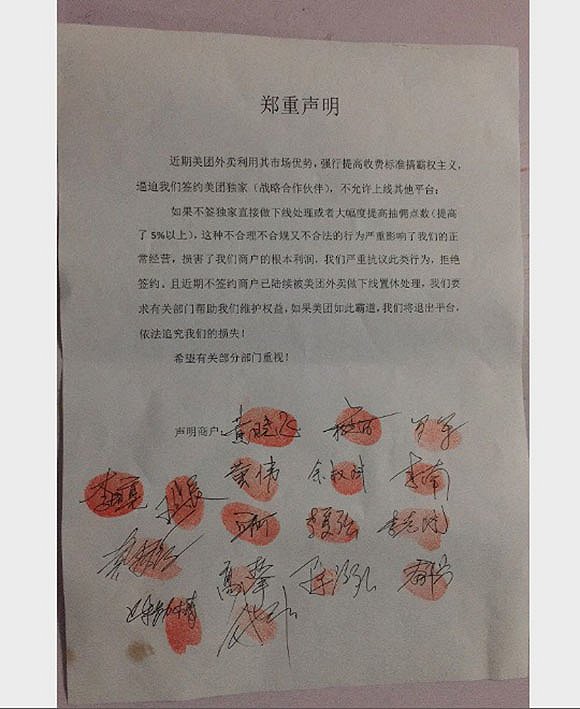 郑重声明
近期美团外卖利用其市场优势，强行提高收费标准搞霸权主义，
逼迫我们签约美团独家（战略合作伙伴），不允许上线其他平台；
如果不签独家直接做下线处理或者大幅度提高抽佣点数（提高
了5%以上），这种不合理不合规又不合法的行为严重影响了我们的正
常经营，损害了我们商户的根本利润，我们严重抗议此类行为，拒绝
签约。且近期不签约商户已陆续被美团外卖做下线置休处理，我们要
求有关部门帮助我们维护权益，如果美团如此霸道，我们将退出平台，
依法追究我们的损失！
希望有关部分部门重视！
声明商户：黄晓飞
黄伟